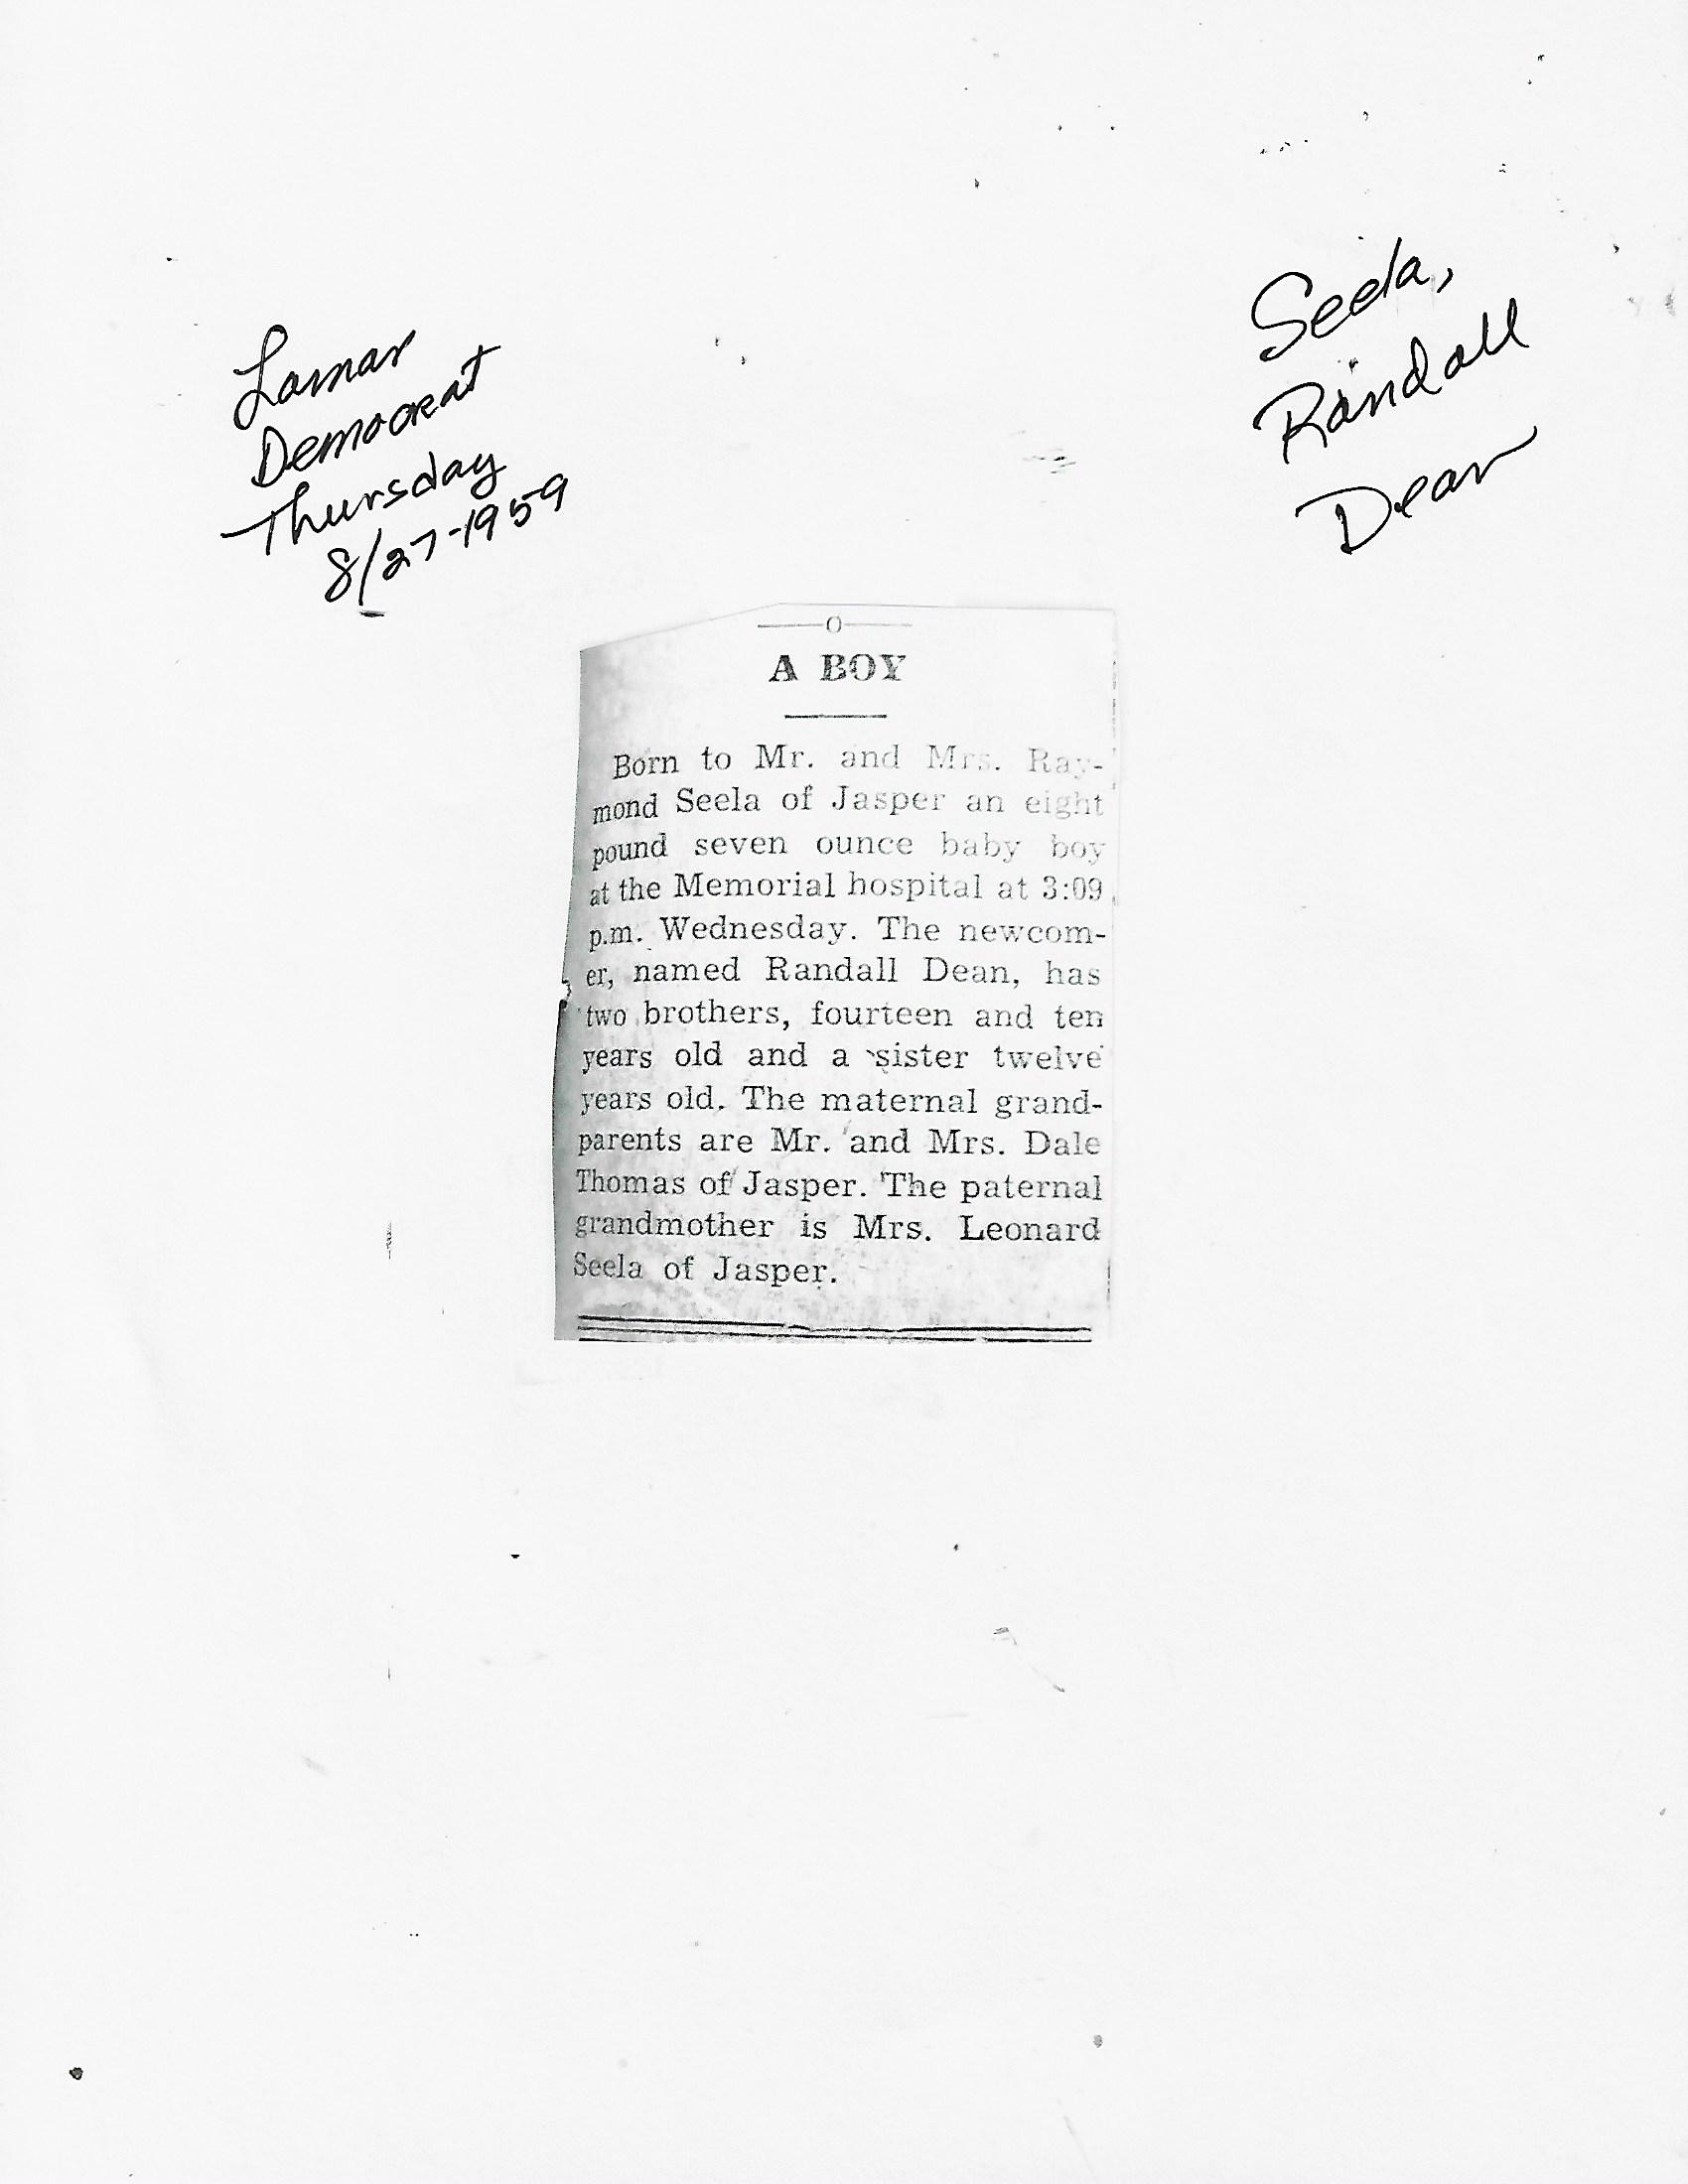 Lamar
Democrat
Thursday
8/27-1959
Seela,
Randall
Dean
A BOY
Born to Mr. and Mrs. Ray-
mond Seela of Jasper an eight
pound seven ounce baby boy
at the Memorial hospital at 3:09
p.m. Wednesday. The newcom-
er, named Randall Dean, has
two brothers, fourteen and ten
years old and a sister twelve
years old. The maternal grand-
parents are Mr. and Mrs. Dale
Thomas of Jasper. The paternal
grandmother is Mrs. Leonard
Seela of Jasper.